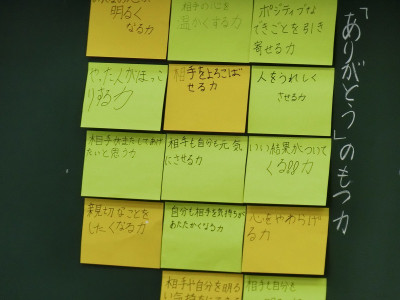 「ありがとう」のもつ力
明るく
なる力
相手の心を
温かくする力
ポジティブな
できごとを引き
寄せる力
やった人がほっこ
りする力
相手をよろこば
せる力
人をうれしく
させる力
相手がまたしてあげ
たいと思う力
相手も自分も元気
にさせる力
いい結果がついて
くる力
親切なことを
したくなる力
自分も相手も気持ちが
あたたかくなる力
心をやわらげ
る力
相手や自分を明る
相手も自分も